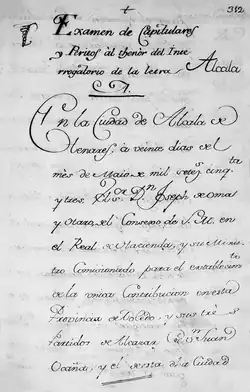 312
Examen de Capitulares
y Peritos al thenor del Inte
rrogatorio de la letra Alcala
A.
En la Ciudad de Alcala de
Henares, a veinte dias del
mes de Maio de mil setez.s cinq.ta
y tres, el S.or D.n Joseph de
y otara, del Consejo de S. M. en
el Real de Hacienda, y su Minis
tro Comisionado para el establecim.to
de la unica Contribucion en esta
Provincia de Toledo, y sus tres
Partidos de Alcazar, S.n Juan
Ocaña, y el de esta dha Ciudad